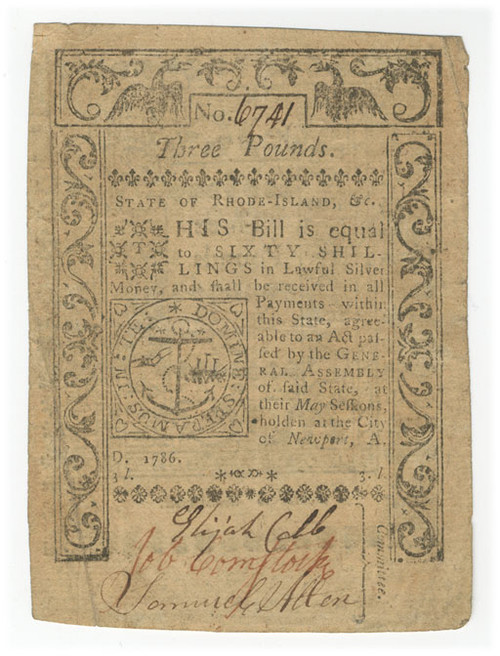 No. 6741
Three Pounds.
STATE OF RHODE-ISLAND, &c.
THIS Bill is equal
to SIXTY SHIL-
LINGS in Lawful Silver
Money, and ſhall be received in all
Payments within
this State, agree-
able to an Act paſ-
ſed by the GENE-
RAL ASSEMBLY
of ſaid State, at
their May Seſſions,
holden at the City
of Newport, A.
D. 1786.
3 l. 3 l.
IN : TE : DOMINE : SPERAMUS :
Elijah Cobb
Job Comstock
Samuel Allen
Committee.